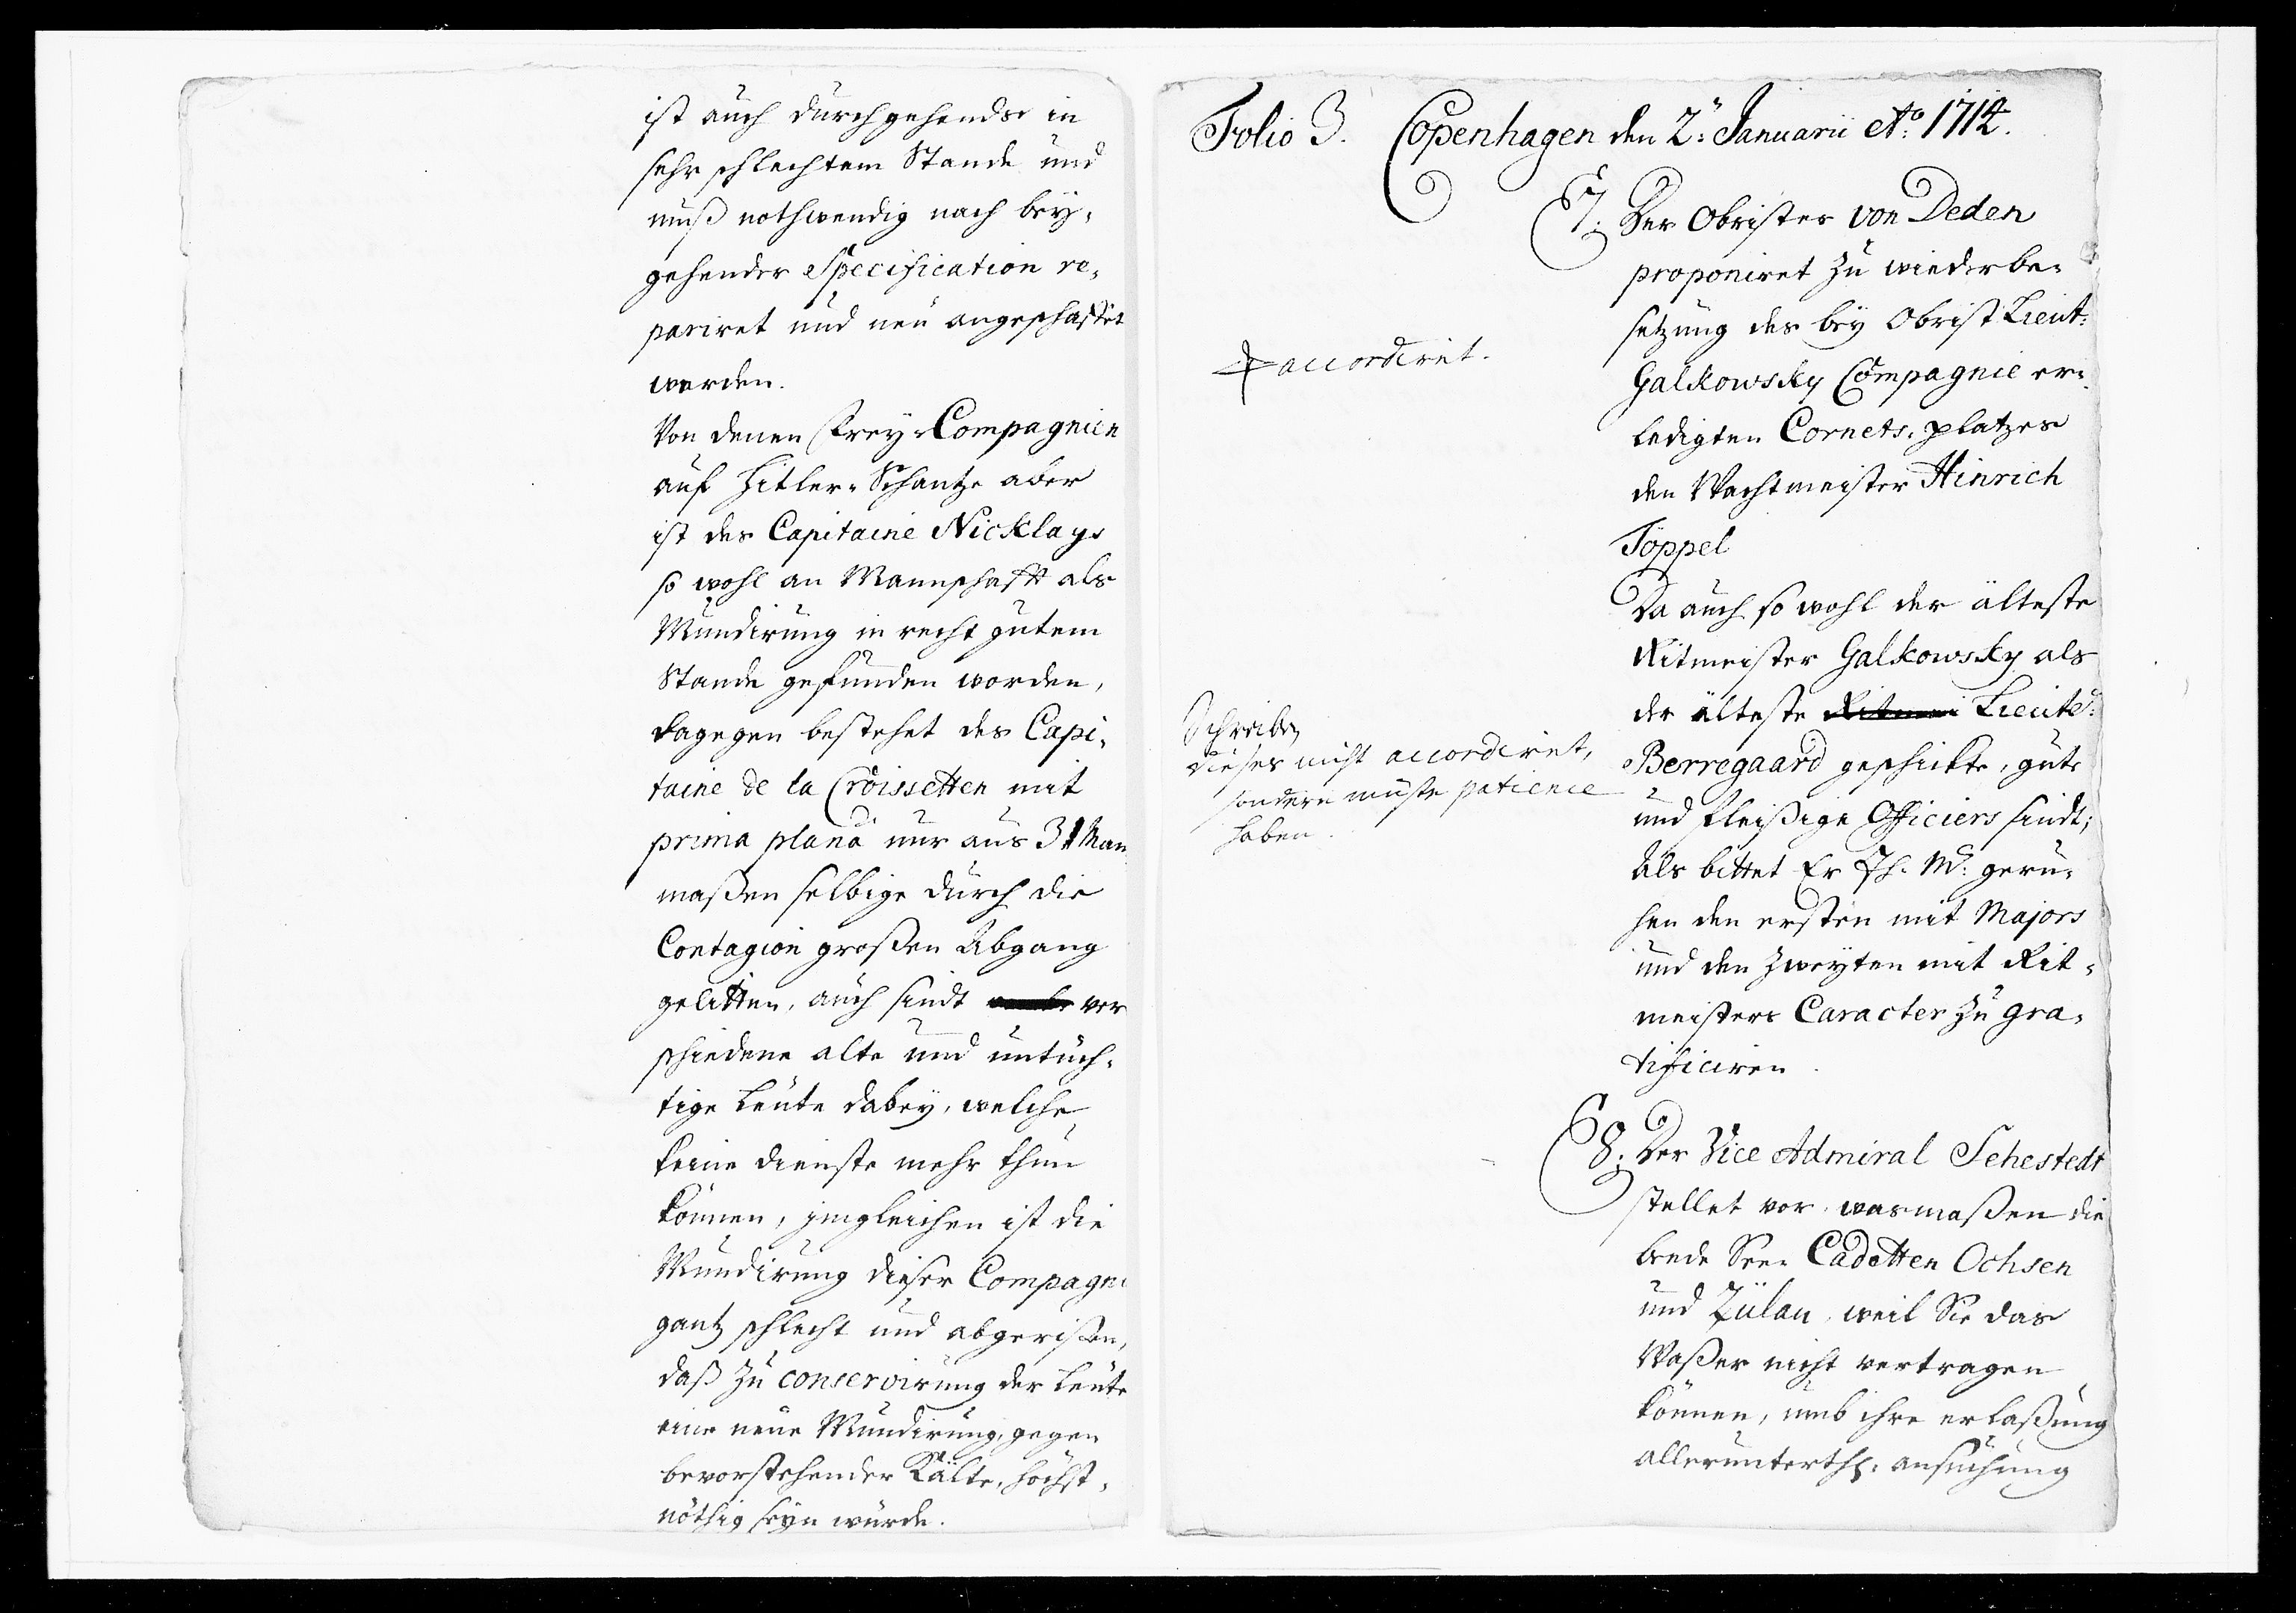 ist auch durchgehends in
sehr schlechtem Stande und
muß nothwendig nach bey-
gehender Specification re-
pariret und neu angeschaffet
werden.
Von denen Frey-Compagnien
auf Hitler-Schantze aber
ist des Capitaine Nicklays
so wohl an Mannschafft als
Mundirung in recht gutem
Stande gefunden worden,
dagegen bestehet des Capi-
taine de la Croissetten mit
prima plana nur aus 31 Man
maßen selbige durch die
Contagion großen Abgang
gelitten, auch sindt ver
schiedene alte und untüch-
tige Leute dabey, welche
keine dienste mehr thun
können, jmgleichen ist die
Mundirung dieser Compagni
gantz schlecht und abgerißen,
daß zu conservirung der Leute
eine neue Mundirung, gegen
bevorstehender Kälte, höchst-
nöthig seyn würde.
Folio 3. Copenhagen den 2: Januarii Ao: 1712.
7. Der Obrister von Deden
proponiret zu wiederbe-
setzung des bey Obrist Lieut:
Galkowsky Compagnie er-
ledigten Cornets-platzes
den Wachtmeister Hinrich
Töppel
accordiret.
Da auch so wohl der älteste
Ritmeister Galkowsky als
der älteste Ritmei Lieute:
Berregaard geschickte, gute
und fleißige Officiers sindt;
Als bittet Er Ih. M: geru-
hen den ersten mit Majors
und den zweyten mit Rit-
meisters Caracter zu gra-
tificiren.
Schreiben
dieses nicht accordiret,
sondern müste patience
haben.
8. Der Vice Admiral Sehestedt
stellet vor, wasmaßen die
beede See-Cadetten Ochsen
und Zülau, weil Sie das
Waßer nicht vertragen
können, umb ihre erlaßung
allerunterth: ansuchung